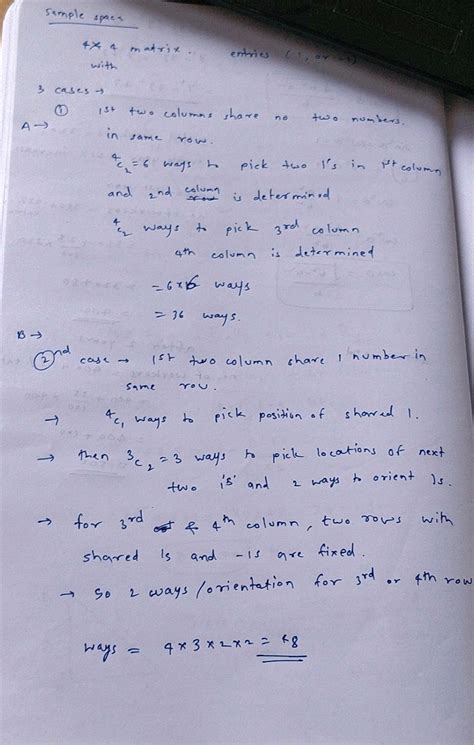 Sample space
4x4 matrix. entries (1, or -1)
with
3 cases →
① 1st two columns share no two numbers.
A → in same row.
4C2 = 6 ways to pick two 1's in 1st column
and 2nd column is determined
4C2 ways to pick 3rd column
4th column is determined
= 6x6 ways
= 36 ways.
B →
②nd case → 1st two column share 1 number in
same row.
→ 4C1 ways to pick position of shared 1.
→ then 3C2 = 3 ways to pick locations of next
two 1's and 2 ways to orient 1s.
→ for 3rd & 4th column, two rows with
shared 1s and -1s are fixed.
→ So 2 ways/orientation for 3rd or 4th row
Ways = 4x3x2x2 = 48